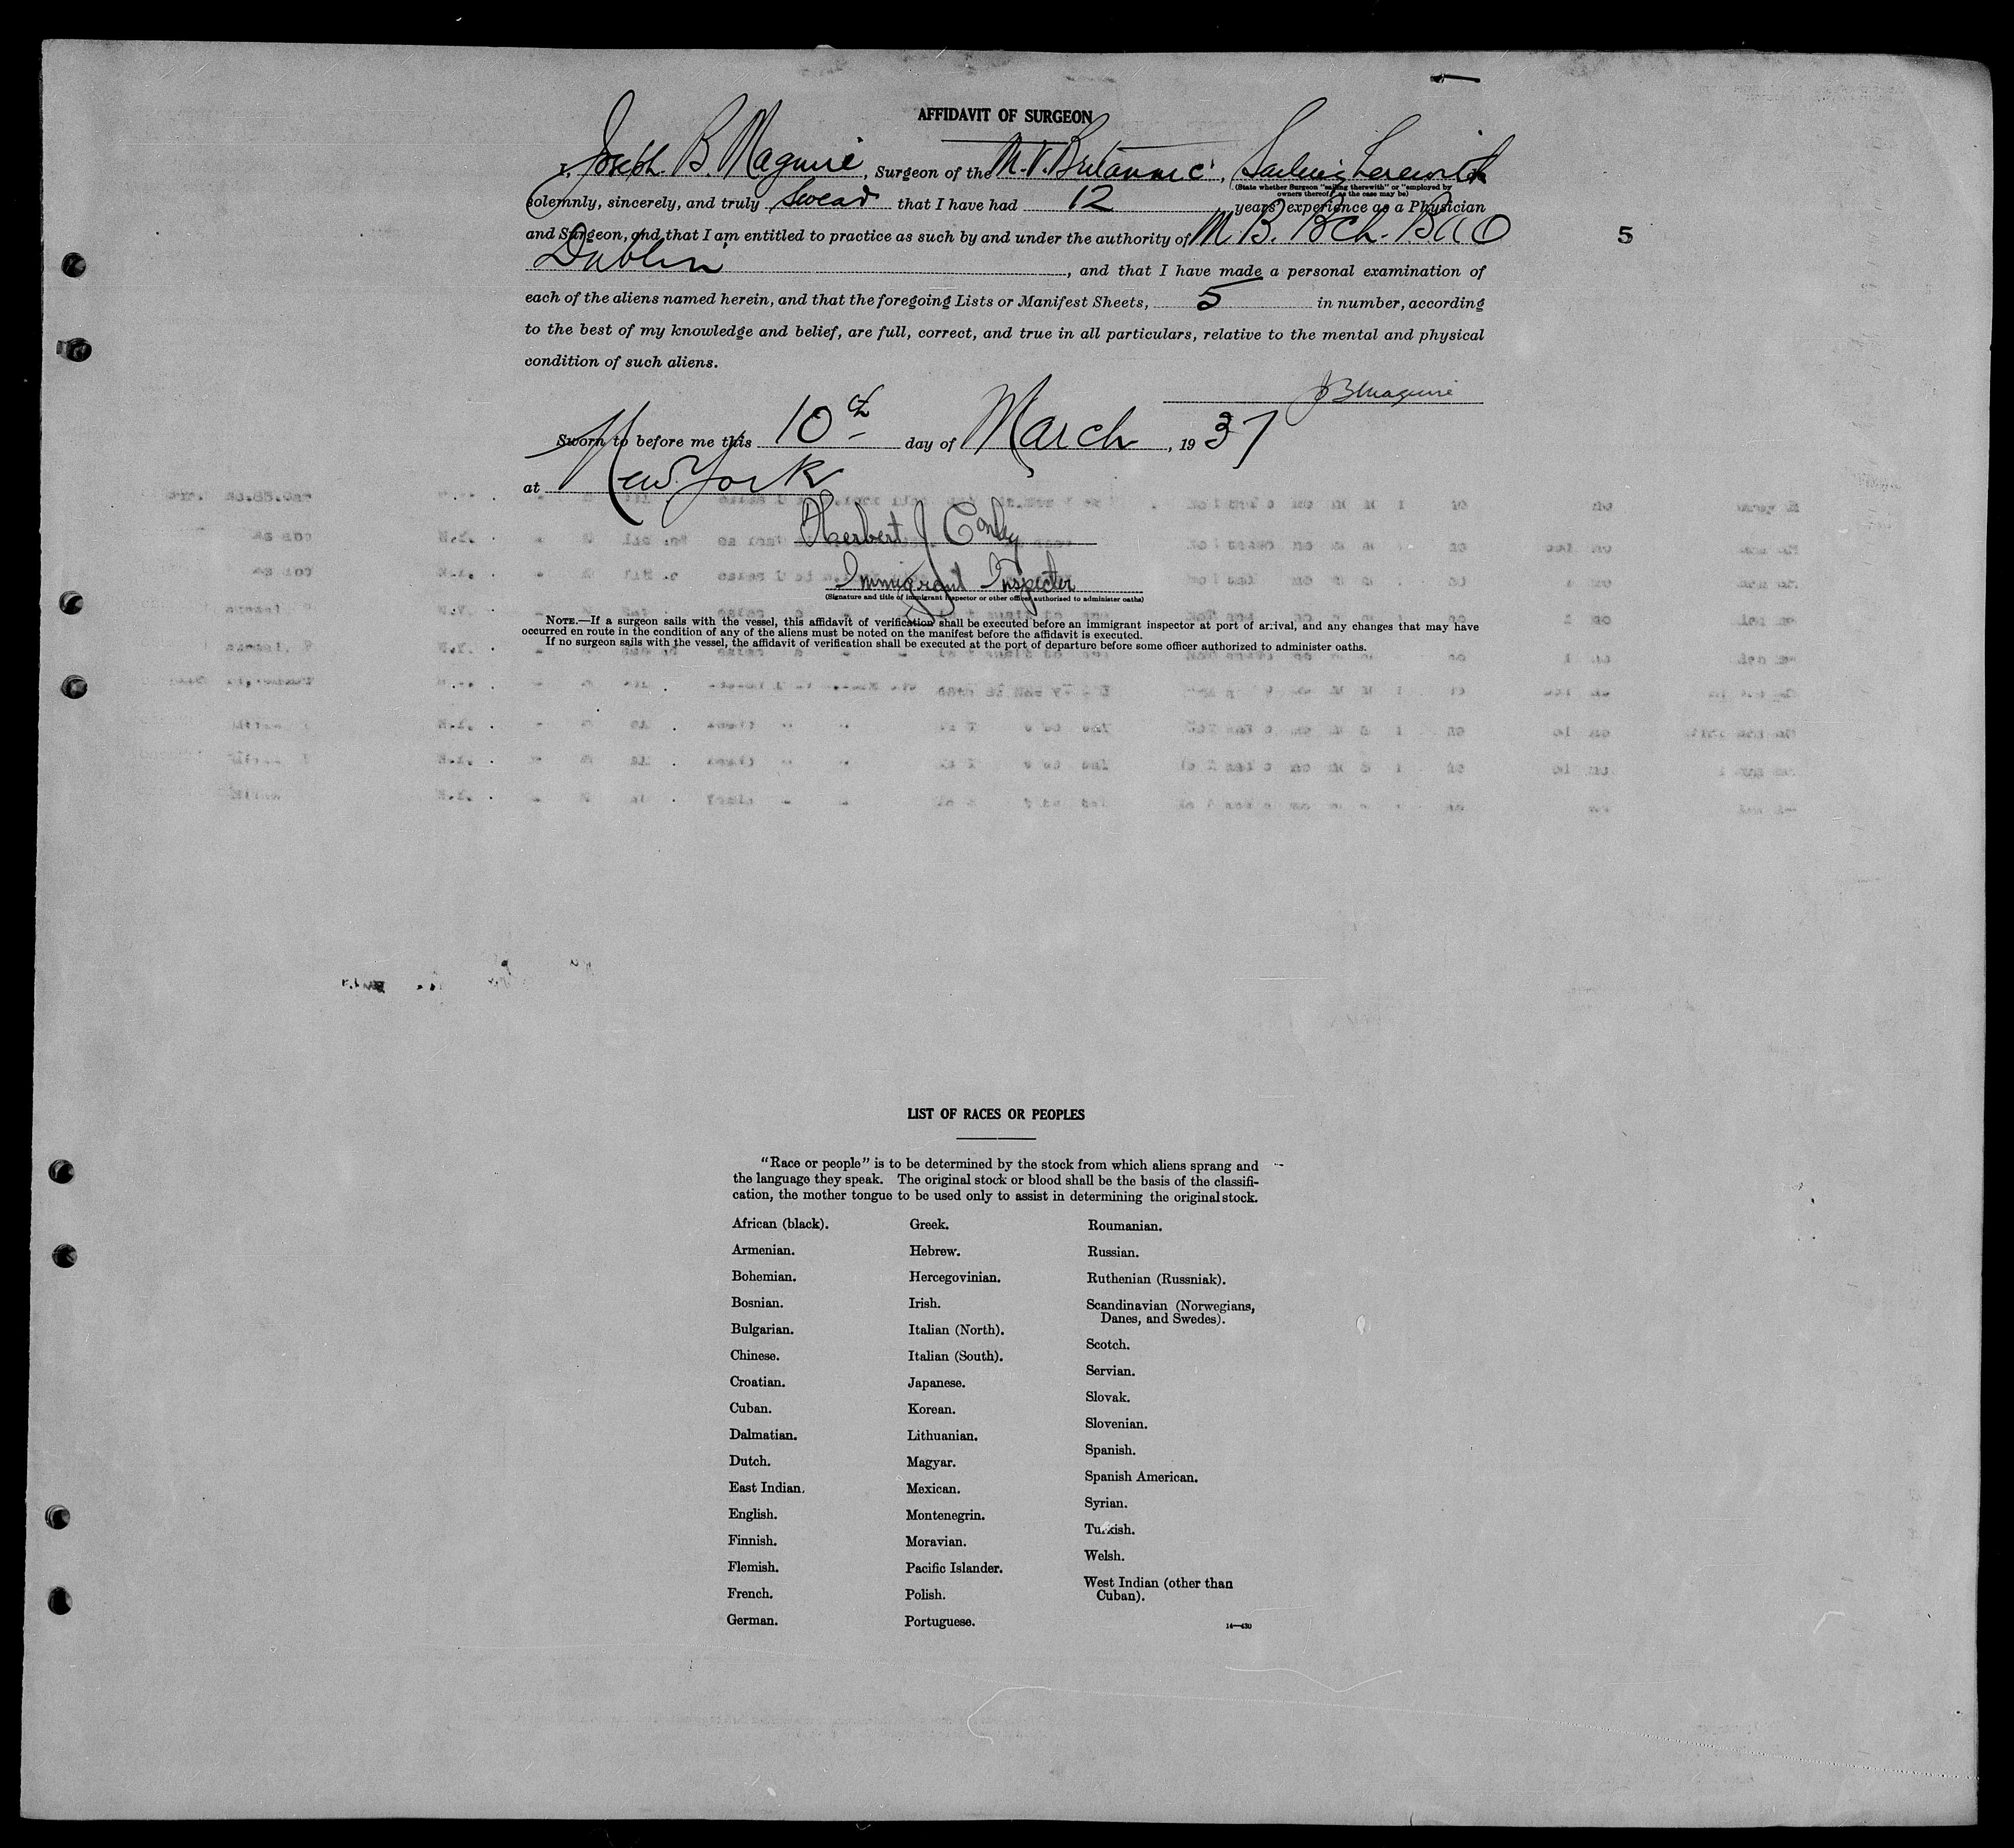 AFFIDAVIT OF SURGEON
I, Joseph B. Maguire, Surgeon of the M.V. Britannic, Sailing therewith
(State whether Surgeon "sailing therewith" or "employed by owners thereof," as the case may be)
solemnly, sincerely, and truly swear that I have had 12 years' experience as a Physician
and Surgeon, and that I am entitled to practice as such by and under the authority of M.B. Bch. BAO
Dublin, and that I have made a personal examination of
each of the aliens named herein, and that the foregoing Lists or Manifest Sheets, 5 in number, according
to the best of my knowledge and belief, are full, correct, and true in all particulars, relative to the mental and physical
condition of such aliens.
JB Maguire
Sworn to before me this 10th day of March, 1937
at New York
Herbert J
Immigrant Inspector
(Signature and title of immigrant inspector or other officer authorised to administer oaths)
NOTE.—If a surgeon sails with the vessel, this affidavit of verification shall be executed before an immigrant inspector at port of arrival, and any changes that may have
occurred en route in the condition of any of the aliens must be noted on the manifest before the affidavit is executed.
If no surgeon sails with the vessel, the affidavit of verification shall be executed at the port of departure before some officer authorized to administer oaths.
5
LIST OF RACES OR PEOPLES
"Race or people" is to be determined by the stock from which aliens sprang and
the language they speak. The original stock or blood shall be the basis of the classifi-
cation, the mother tongue to be used only to assist in determining the original stock.
African (black).
Armenian.
Bohemian.
Bosnian.
Bulgarian.
Chinese.
Croatian.
Cuban.
Dalmatian.
Dutch.
East Indian.
English.
Finnish.
Flemish.
French.
German.
Greek.
Hebrew.
Hercegovinian.
Irish.
Italian (North).
Italian (South).
Japanese.
Korean.
Lithuanian.
Magyar.
Mexican.
Montenegrin.
Moravian.
Pacific Islander.
Polish.
Portuguese.
Roumanian.
Russian.
Ruthenian (Russniak).
Scandinavian (Norwegians,
Danes, and Swedes).
Scotch.
Servian.
Slovak.
Slovenian.
Spanish.
Spanish American.
Syrian.
Turkish.
Welsh.
West Indian (other than
Cuban).
14—430